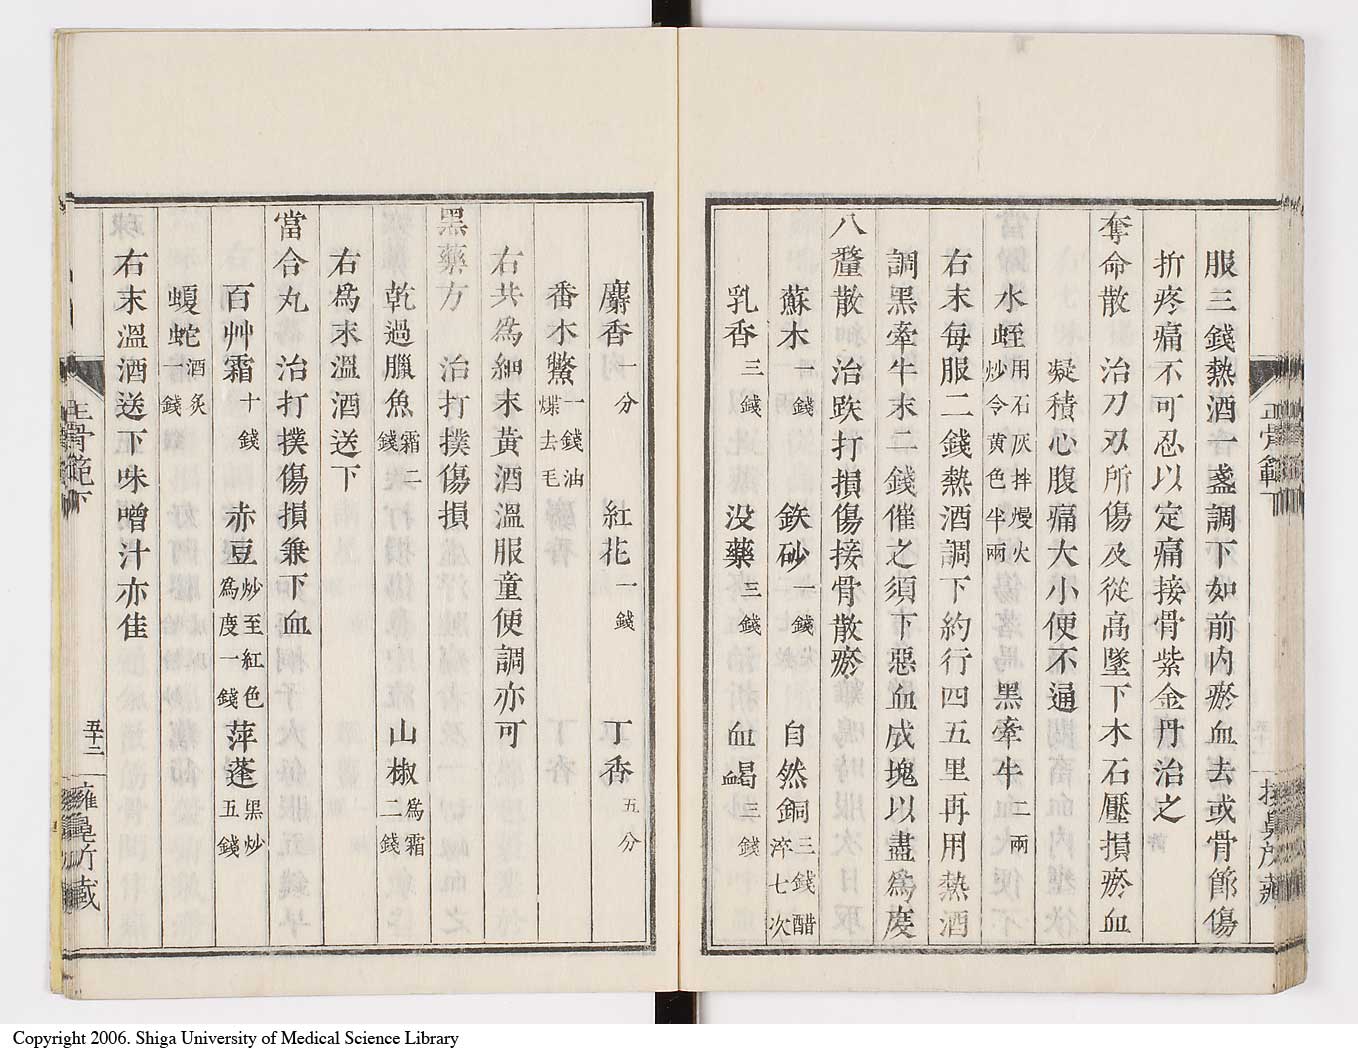 服三錢熱酒一盞調下如前內瘀血去或骨節傷
折疼痛不可忍以定痛接骨紫金丹治之
奪命散　治刀刃所傷及從高墜下木石壓損瘀血
凝積心腹痛大小便不通
水蛭用石灰拌熳火炒令黄色半兩　黑牽牛二兩
右末每服二錢熱酒調下約行四五里再用熱酒
調黑牽牛末二錢催之須下惡血成塊以盡爲度
八釐散　治跌打損傷接骨散瘀
蘇木一錢　鉄砂一錢　自然銅三錢醋淬七次
乳香三錢　没藥三錢　血竭三錢
麝香一分　紅花一錢　丁香五分
番木鱉一錢油煠去毛
右共爲細末黃酒溫服童便調亦可
黑藥方　治打撲傷損
乾過臘魚霜二錢　山椒爲霜二錢
右爲末溫酒送下
當合丸　治打撲傷損兼下血
百艸霜十錢　赤豆炒至紅色爲度一錢　萍蓬黒炒五錢
蝮蛇酒炙一錢
右末溫酒送下味噌汁亦佳
正骨範下
五十二
Copyright 2006. Shiga University of Medical Science Library